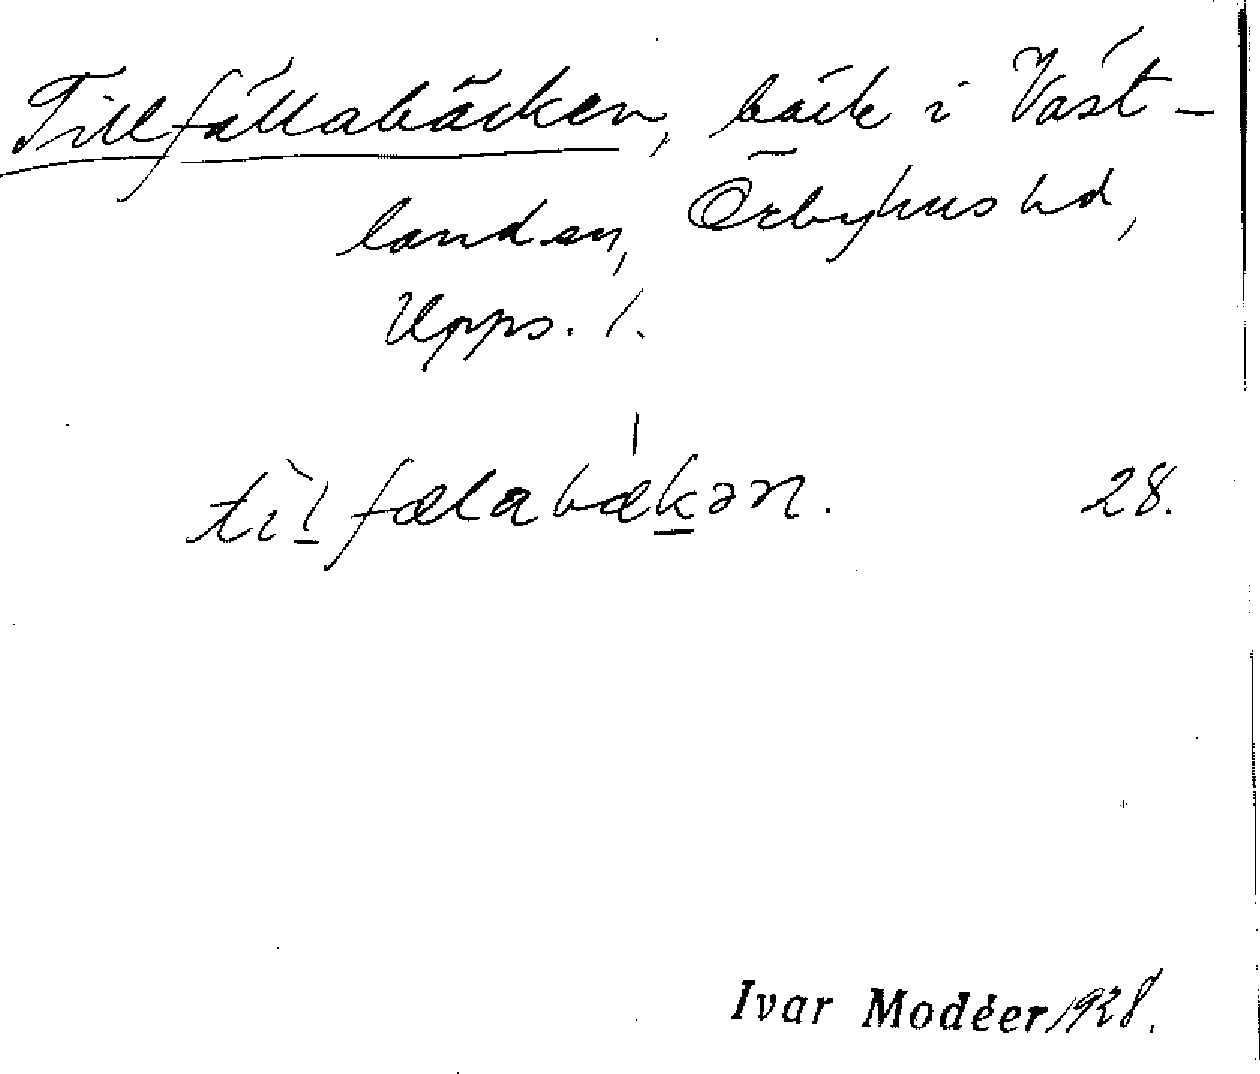 Tillfällabäcken, bäck i Väst-
landen, Örbyhus hd,
Upps. l.
til fælabækən. 28.
Ivar Modéer 1928.